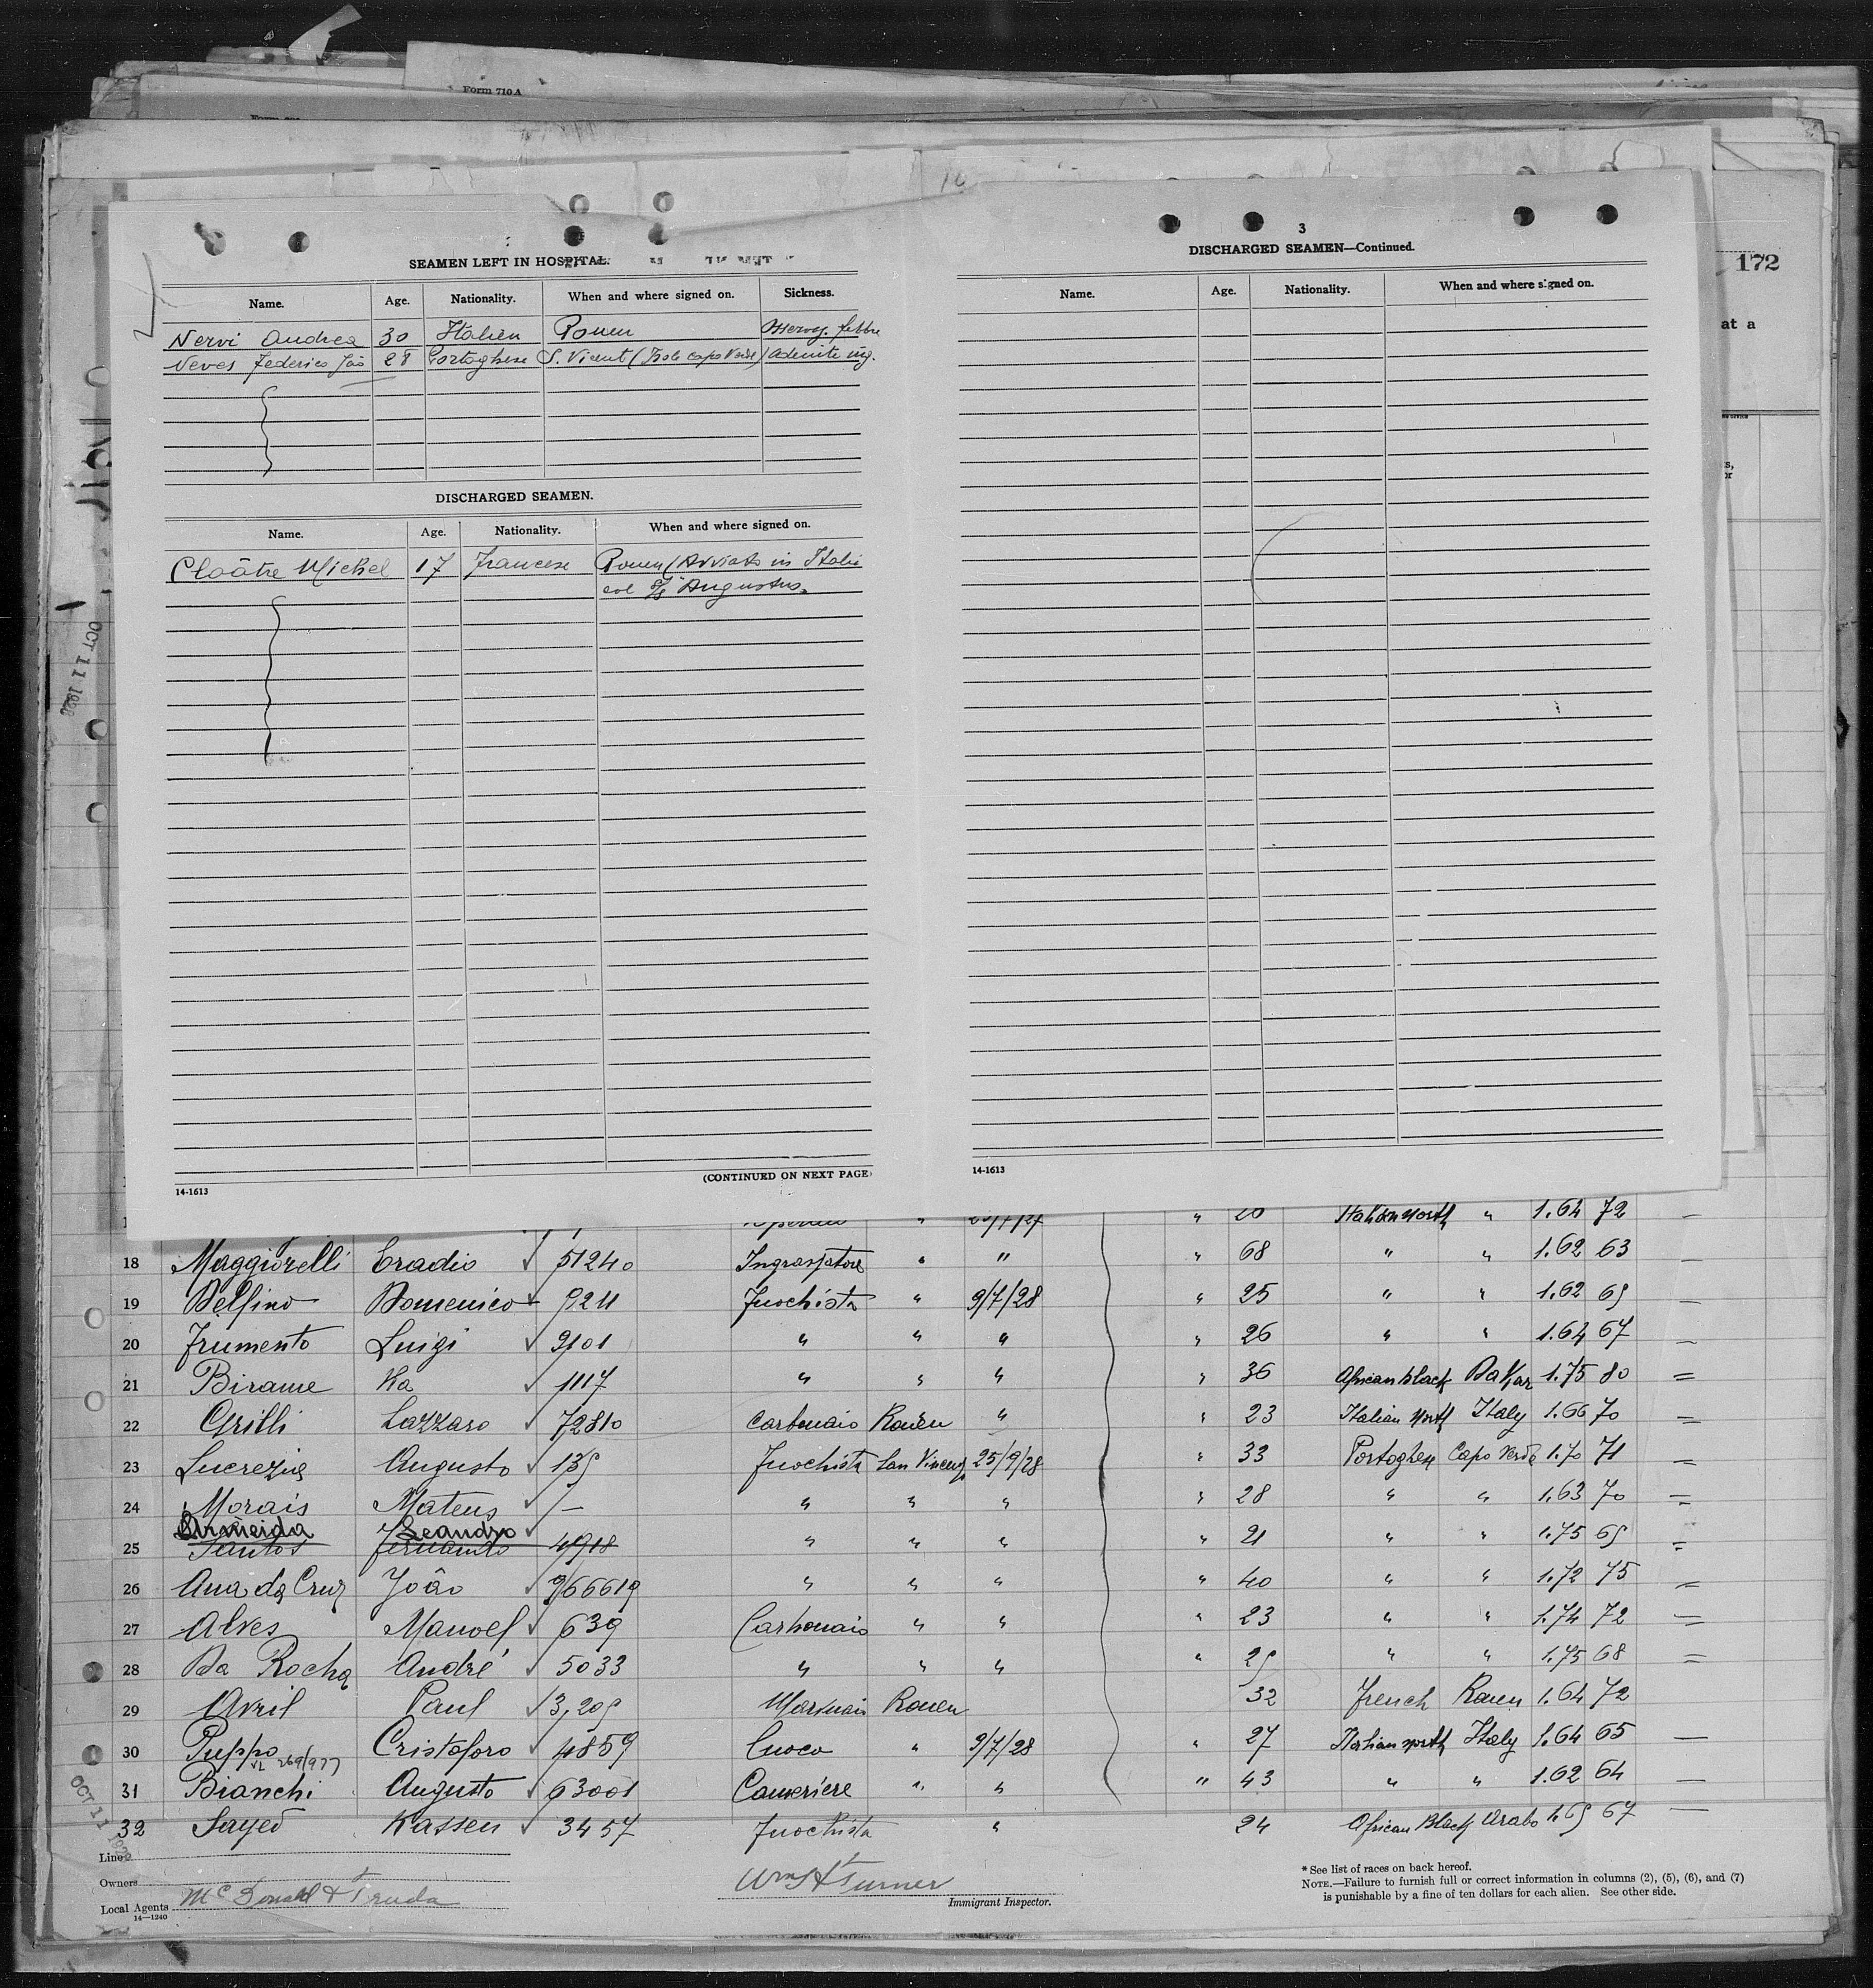 Form 710A
172
at a
SEAMEN LEFT IN HOSPITAL.
Name. Age. Nationality. When and where signed on. Sickness.
Nervi Andrea 30 Italien Rouen
Neves Federico 28 Portoghese S. Vicent (Isole capo Verde) Adenite ing.
DISCHARGED SEAMEN.
Name. Age. Nationality. When and where signed on.
Cloâtre Michel 17 Francese Rouen (Avviato in Italia
col S/S "Augustus"
(CONTINUED ON NEXT PAGE)
14-1613
3
DISCHARGED SEAMEN—Continued.
Name. Age. Nationality. When and where signed on.
14-1613
OCT 11 1928
" " Italian North " 1.64 72 —
18 Maggiorelli Eradio ✓ 51240 Ingrassatore " " " 68 " " 1.62 63 —
19 Delfino Domenico 9211 Fuochista " 9/7/28 " 25 " " 1.62 69 —
20 Frumento Luigi ✓ 9101 " " " " 26 " " 1.64 67 —
21 Birame Ka ✓ 1117 " " " " 36 African black Dakar 1.75 80 =
22 Grilli Lazzaro ✓ 72810 Carbonaio Rouen " " 23 Italian North Italy 1.66 70 =
23 Lucrezia Augusto ✓ 139 Fuochista San Vincenzo 25/9/28 " 33 Portoghese Capo Verde 1.70 71 =
24 Morais Mateus ✓ — " " " " 28 " " 1.63 70 =
Almeida Leandro ✓
25 Santos Fernando 4918 " " " " 21 " " 1.75 69 =
26 Ana da Cruz João ✓ 966619 " " " " 40 " " 1.72 75 =
27 Alves Manoel ✓ 639 Carbonaio " " " 23 " " 1.74 72 =
28 Da Rocha André ✓ 5033 " " " " 29 " " 1.75 68 =
29 Avril Paul ✓ 3,209 Rouen 32 French Rouen 1.64 72
30 Puppo Cristoforo ✓ 4859 Cuoco " 9/7/28 " 27 Italian North Italy 1.64 65 —
VL 269/977
31 Bianchi Augusto ✓ 63001 Cameriere " " " 43 " " 1.62 64 —
32 Sayed Kassen ✓ 3457 Fuochista " 24 African Black Arabo 1.69 67 —
OCT 11 1928
Line
Owners
Local Agents McDonald & Truda
14—1240
Wm H Turner
Immigrant Inspector.
* See list of races on back hereof.
NOTE.—Failure to furnish full or correct information in columns (2), (5), (6), and (7)
is punishable by a fine of ten dollars for each alien. See other side.